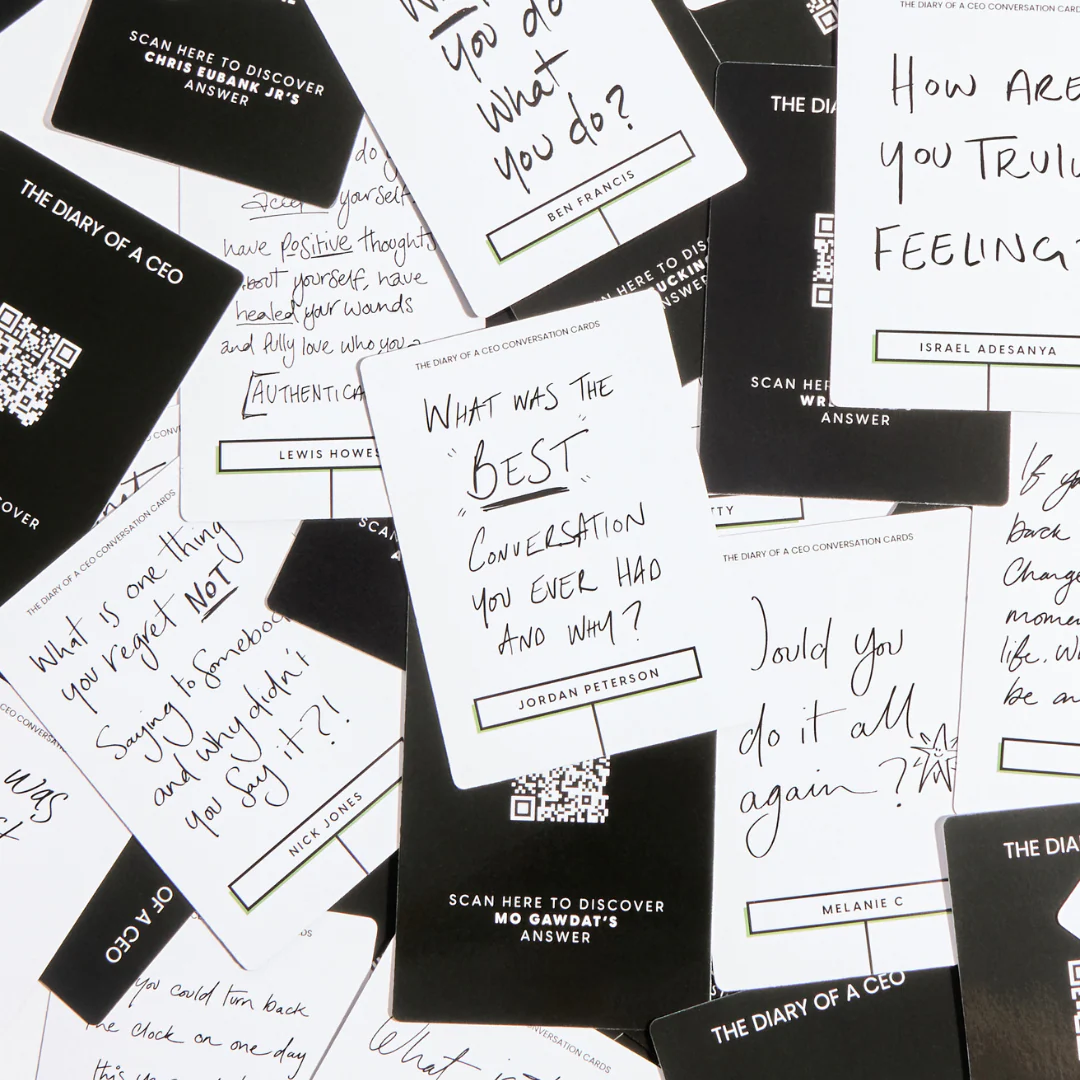 SCAN HERE TO DISCOVER
CHRIS EUBANK JR'S
ANSWER
you do
What
you do?
BEN FRANCIS
THE DIARY OF A CEO CONVERSATION CARDS
HOW ARE
YOU
FEELING?
ISRAEL ADESANYA
THE DIARY OF A CEO
do
yourself.
have positive thoughts
about yourself, have
healed your wounds
and fully love who you
LEWIS HOWES
HERE TO
SCAN
ANSWER
THE DIARY OF A CEO CONVERSATION CARDS
WHAT WAS THE
"BEST"
CONVERSATION
YOU EVER HAD
AND WHY?
JORDAN PETERSON
SCAN HERE TO DISCOVER
MO GAWDAT'S
ANSWER
THE DIARY OF A CEO CONVERSATION CARDS
What is one thing
you regret NOT
Saying to Somebody
and why didn't
you Say it?!
NICK JONES
THE DIARY OF A CEO CONVERSATION CARDS
Would you
do it all
again?
MELANIE C
If
back
Change
life.
be
was
OF A CEO
you could turn back
the clock on one day
this
What
CONVERSATION CARDS
THE DIARY OF A CEO
THE